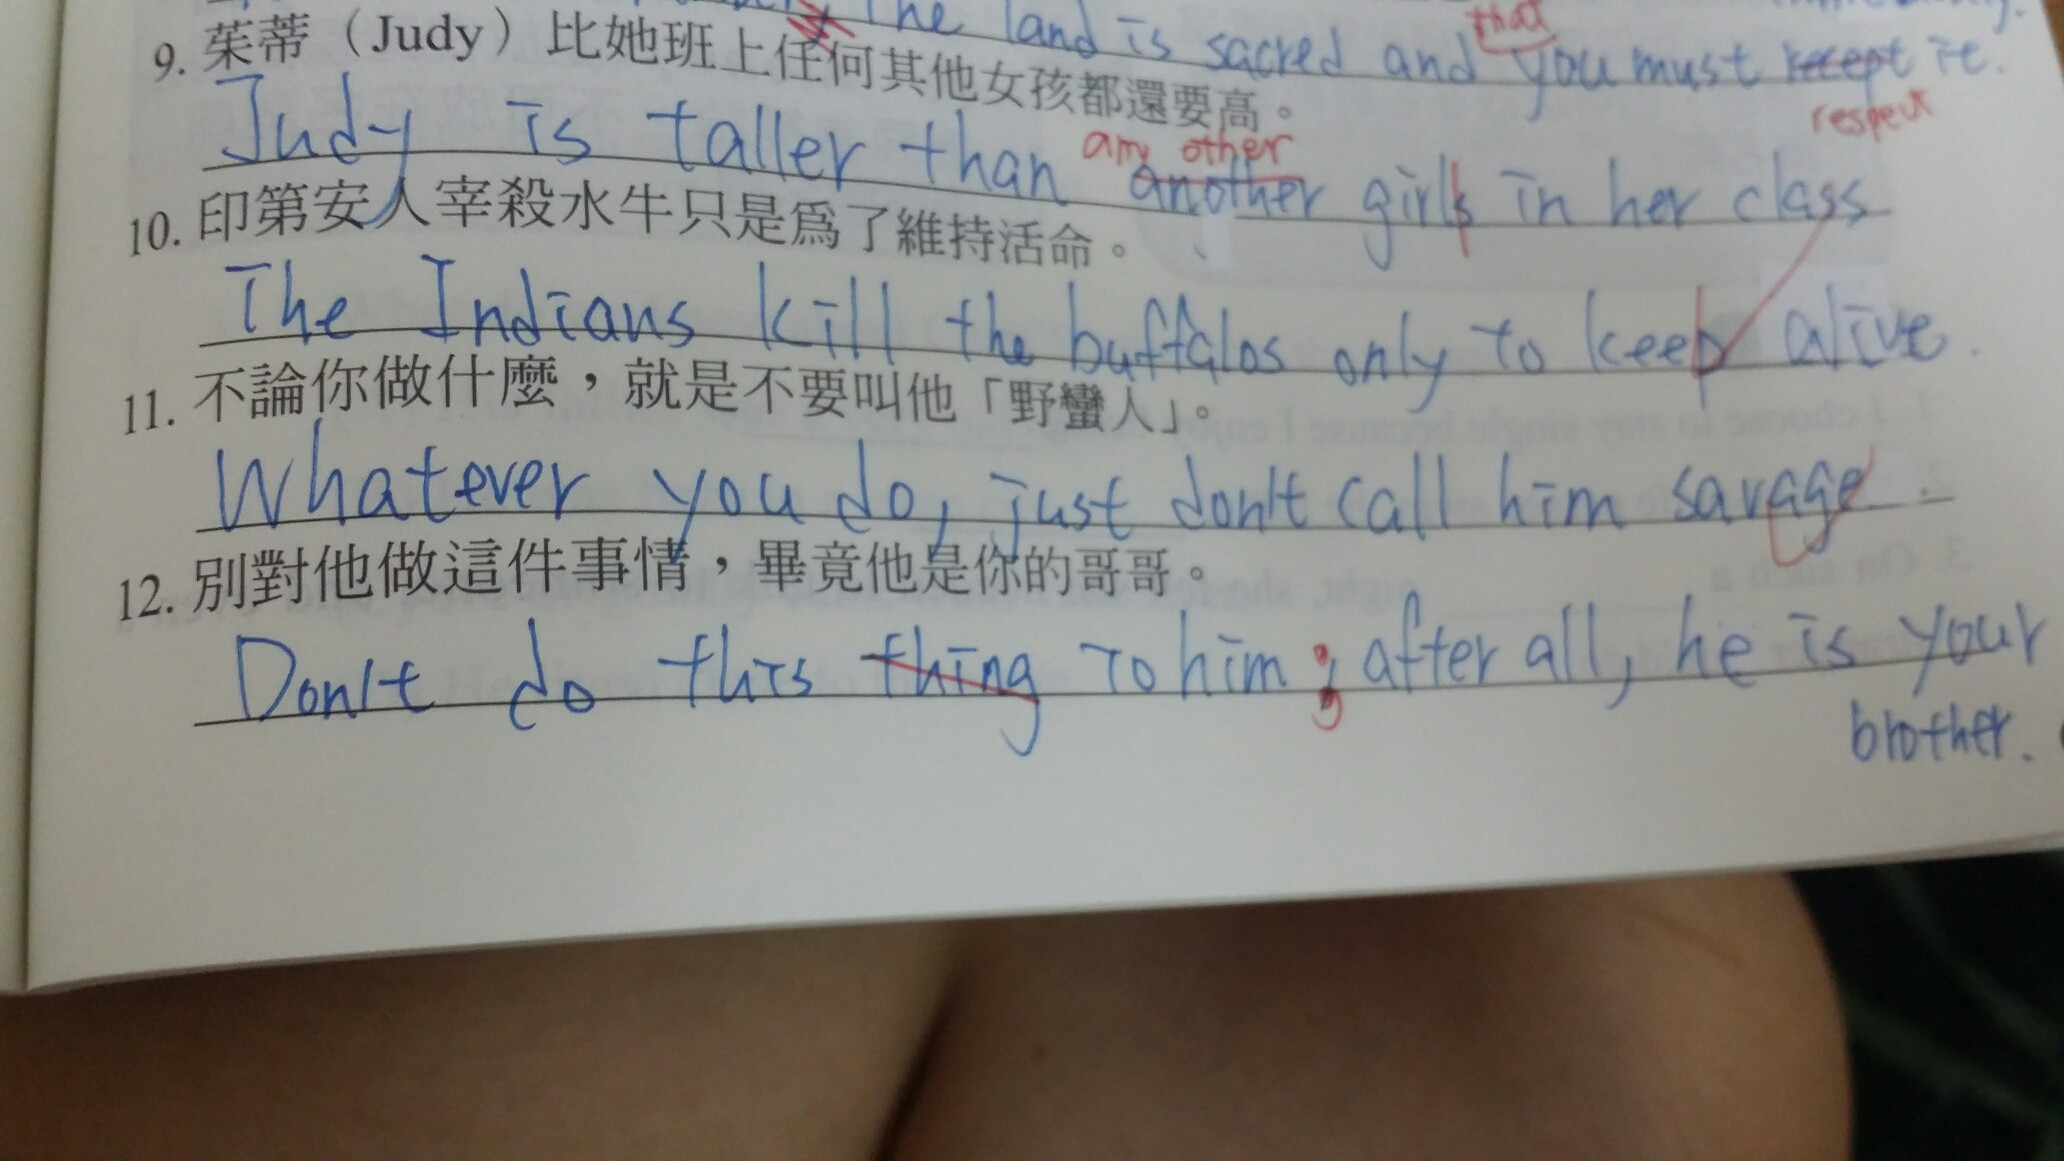 The land is sacred and you must recept it.
that
respect
9. 茱蒂（Judy）比她班上任何其他女孩都還要高。
any other
Judy is taller than another girls in her class
10. 印第安人宰殺水牛只是為了維持活命。
The Indians kill the buffalos only to keep alive.
11. 不論你做什麼，就是不要叫他「野蠻人」。
Whatever you do, just don't call him savage.
12. 別對他做這件事情，畢竟他是你的哥哥。
Don't do this thing to him ; after all, he is your
brother.